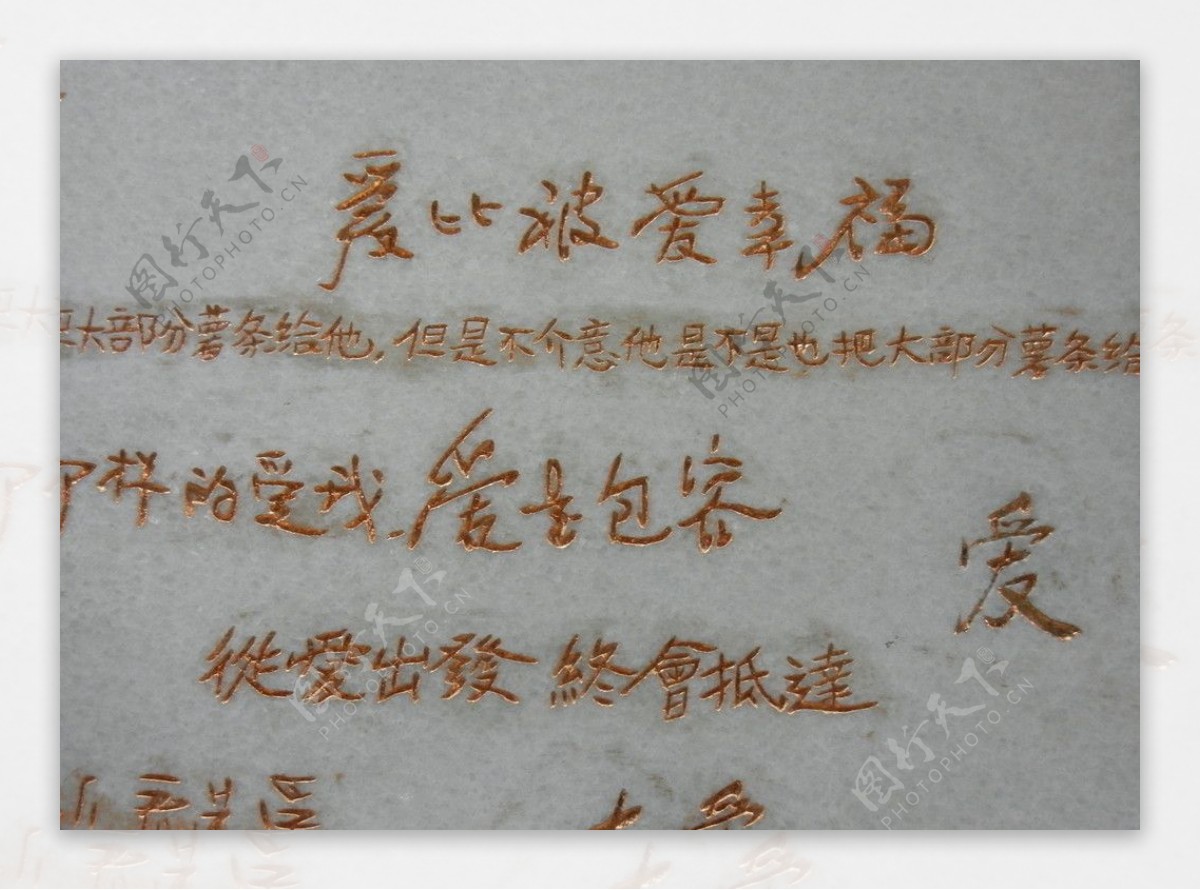 爱比被爱幸福
大部分薯条给他,但是不介意他是不是也把大部分薯条给
样的爱我.爱是包容
爱
從愛出發 終會抵達
图行天下 PHOTOPHOTO.CN